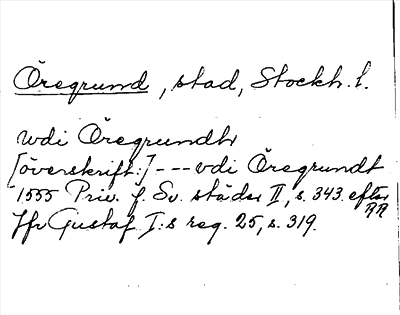 Öregrund, stad, Stockh. l.
wdi Öregrundh
[överskrift:] --- vdi Öregrundt
1555 Priv. f. Sv. städer II, s. 343. efter RR
Jfr Gustaf I:s reg. 25, s. 319.